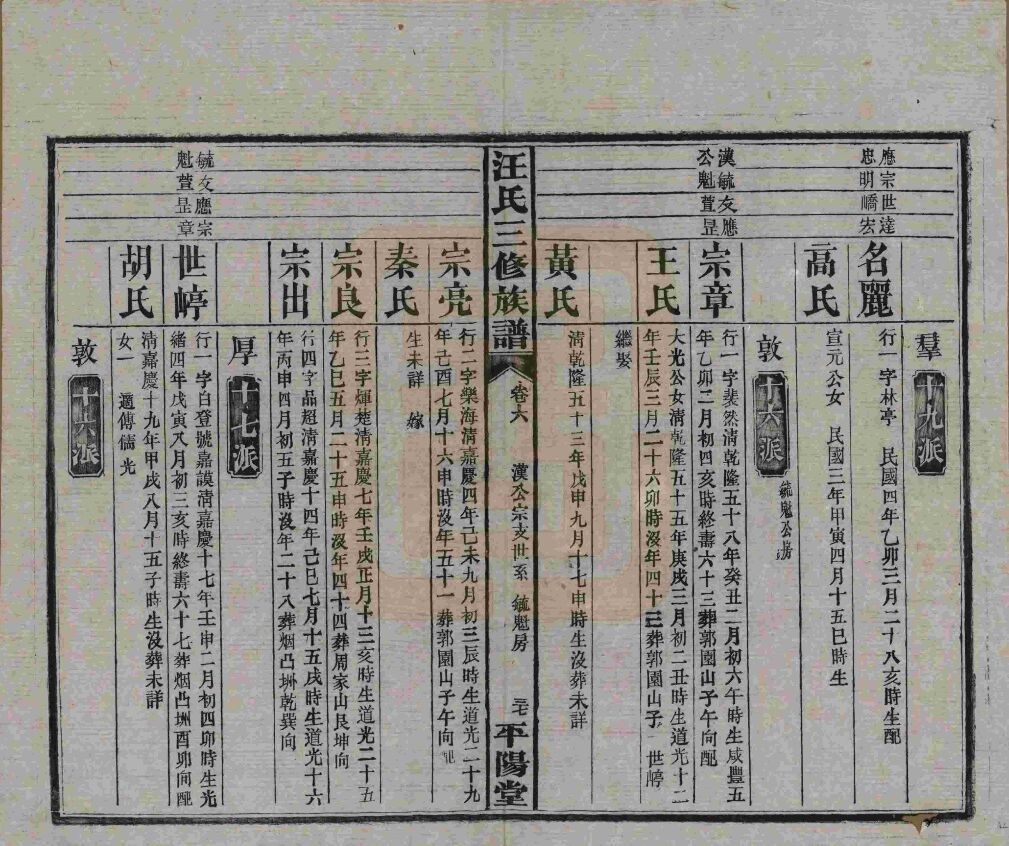 羣十九派
應宗世達
忠明嶠宏
名麗
行一字林亭　民國四年乙卯三月二十八亥時生配
高氏
宣元公女　民國三年甲寅四月十五巳時生
敦十六派　毓魁公房
漢毓友應
公魁萱昱
宗章
行一字裴然清乾隆五十八年癸丑二月初六午時生咸豐五
年乙卯二月初四亥時終壽六十三葬郭園山子午向配
王氏
大光公女清乾隆五十五年庚戌三月初二丑時生道光十二
年壬辰三月二十六卯時沒年四十三葬郭園山子一世㠉
繼娶
黃氏
清乾隆五十三年戊申九月十七申時生沒葬未詳
汪氏三修族譜
卷六
漢公宗支世系　毓魁房
三七
平陽堂
宗亮
行二字樂海清嘉慶四年己未九月初三辰時生道光二十九
年己酉七月十六申時沒年五十一葬郭園山子午向配
秦氏
生未詳　嫁
宗良
行三字煇楚清嘉慶七年壬戌正月十三亥時生道光二十五
年乙巳五月二十五申時沒年四十四葬周家山艮坤向
宗出
行四字品超清嘉慶十四年己巳七月十五戌時生道光十六
年丙申四月初五子時沒年二十八葬烟凸坿乾巽向
厚十七派
毓友應宗
魁萱昱章
世㠉
行一字白登號嘉謨清嘉慶十七年壬申二月初四卯時生光
緒四年戊寅八月初三亥時終壽六十七葬烟凸坿酉卯向配
胡氏
清嘉慶十九年甲戌八月十五子時生沒葬未詳
女一　適傅儒光
敦十六派